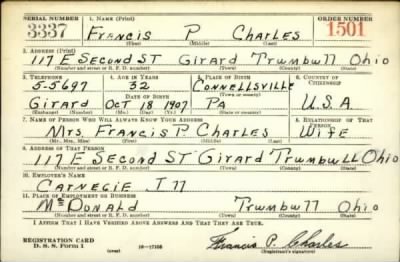 SERIAL NUMBER 1. NAME (Print) ORDER NUMBER
3337 FRANCIS P CHARLES 1501
(First) (Middle) (Last)
2. ADDRESS (Print)
117 E SECOND ST GIRARD TRUMBULL OHIO
(Number and street or R. F. D. number) (Town) (County) (State)
3. TELEPHONE 4. AGE IN YEARS 5. PLACE OF BIRTH 6. COUNTRY OF CITIZENSHIP
5-5697 32 CONNELLSVILLE
DATE OF BIRTH (Town or county)
GIRARD OCT 18 1907 PA U.S.A
(Exchange) (Number) (Mo.) (Day) (Yr.) (State or country)
7. NAME OF PERSON WHO WILL ALWAYS KNOW YOUR ADDRESS 8. RELATIONSHIP OF THAT PERSON
MRS. FRANCIS P. CHARLES WIFE
(Mr., Mrs., Miss) (First) (Middle) (Last)
9. ADDRESS OF THAT PERSON
117 E SECOND ST GIRARD TRUMBULL OHIO
(Number and street or R. F. D. number) (Town) (County) (State)
10. EMPLOYER'S NAME
CARNEGIE Ill
11. PLACE OF EMPLOYMENT OR BUSINESS
McDONALD TRUMBULL OHIO
(Number and street or R. F. D. number) (Town) (County) (State)
I AFFIRM THAT I HAVE VERIFIED ABOVE ANSWERS AND THAT THEY ARE TRUE.
REGISTRATION CARD
D. S. S. Form 1 (over) 16-17105 Francis P. Charles
(Registrant's signature)